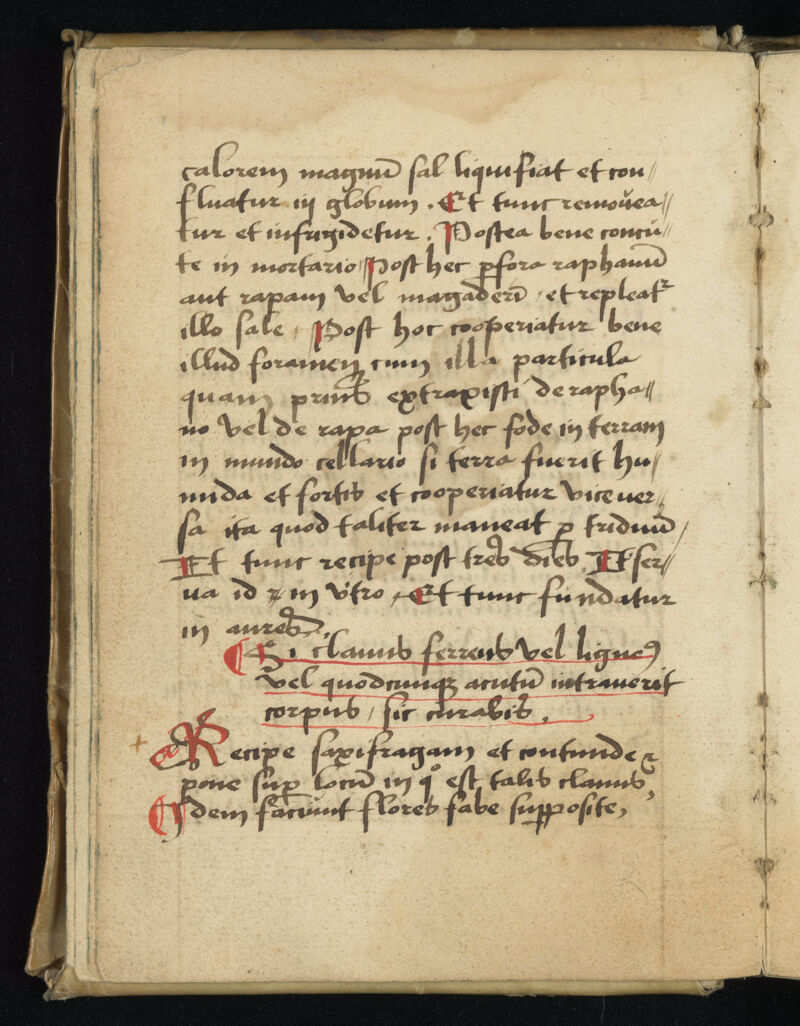 calorem magnū sal liquifiat et con//
fluatur in globum. Et tunc remouea//
tur et infrigidetur. Postea bene concu//
te in mortario Post hec ꝑfora raphanū
aut rapam vel magaderī et repleatᷣ
illo sale. Post hoc cooperiatur bene
illud foramen cum illa particula
quam prius extraxisti de rapha//
no vel de rapa post hec fode in terram
in mundo cellario si terra fuerit hu/
mida et fortis et cooperiatur vice ver//
sa ita quod taliter maneat ꝑ triduū /
Et tunc recipe post tres dies. Et ser//
ua id in vitro Et tunc fundatur
in aures.
¶ Si clauus ferreus vel ligneꝰ
vel quodcunqꝫ acutū intrauerit
corpus / sic curabis.
Recipe saxifragam et contunde ⁊
pone suꝑ locū in qͦ est talis clauus,
Idem faciunt flores fabe supposite,